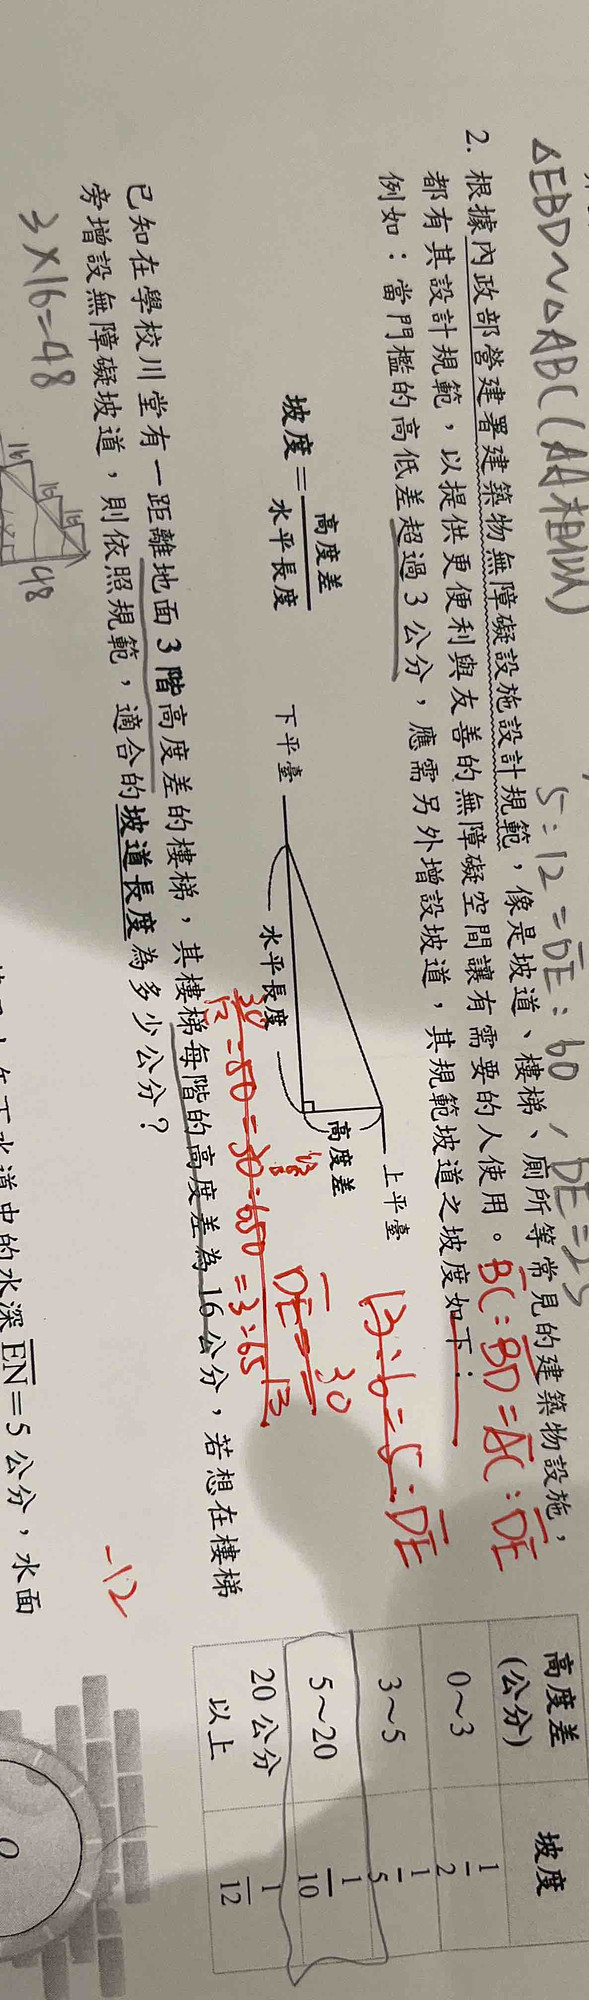 △EBD~△ABC(AA相似)
5:12=DE:60
2. 根據內政部營建署建築物無障礙設施設計規範，像是坡道、樓梯、廁所等常見的建築物設施，
都有其設計規範，以提供更便利與友善的無障礙空間讓有需要的人使用。
例如：當門檻的高低差超過3公分，應需另外增設坡道，其規範坡道之坡度如下：
BC:BD=AC:DE
13:6=5:DE
坡度=高度差/水平長度
下平臺
水平長度
高度差
上平臺
DE=30/13
高度差(公分) 坡度
0～3 1/2
3～5 1/5
5～20 1/10
20公分以上 1/12
=3:65
已知在學校川堂有一距離地面3階高度差的樓梯，其樓梯每階的高度差為16公分，若想在樓梯
旁增設無障礙坡道，則依照規範，適合的坡道長度為多少公分？
3×16=48
16
16
16
48
-12
水道中的水深EN=5公分，水面